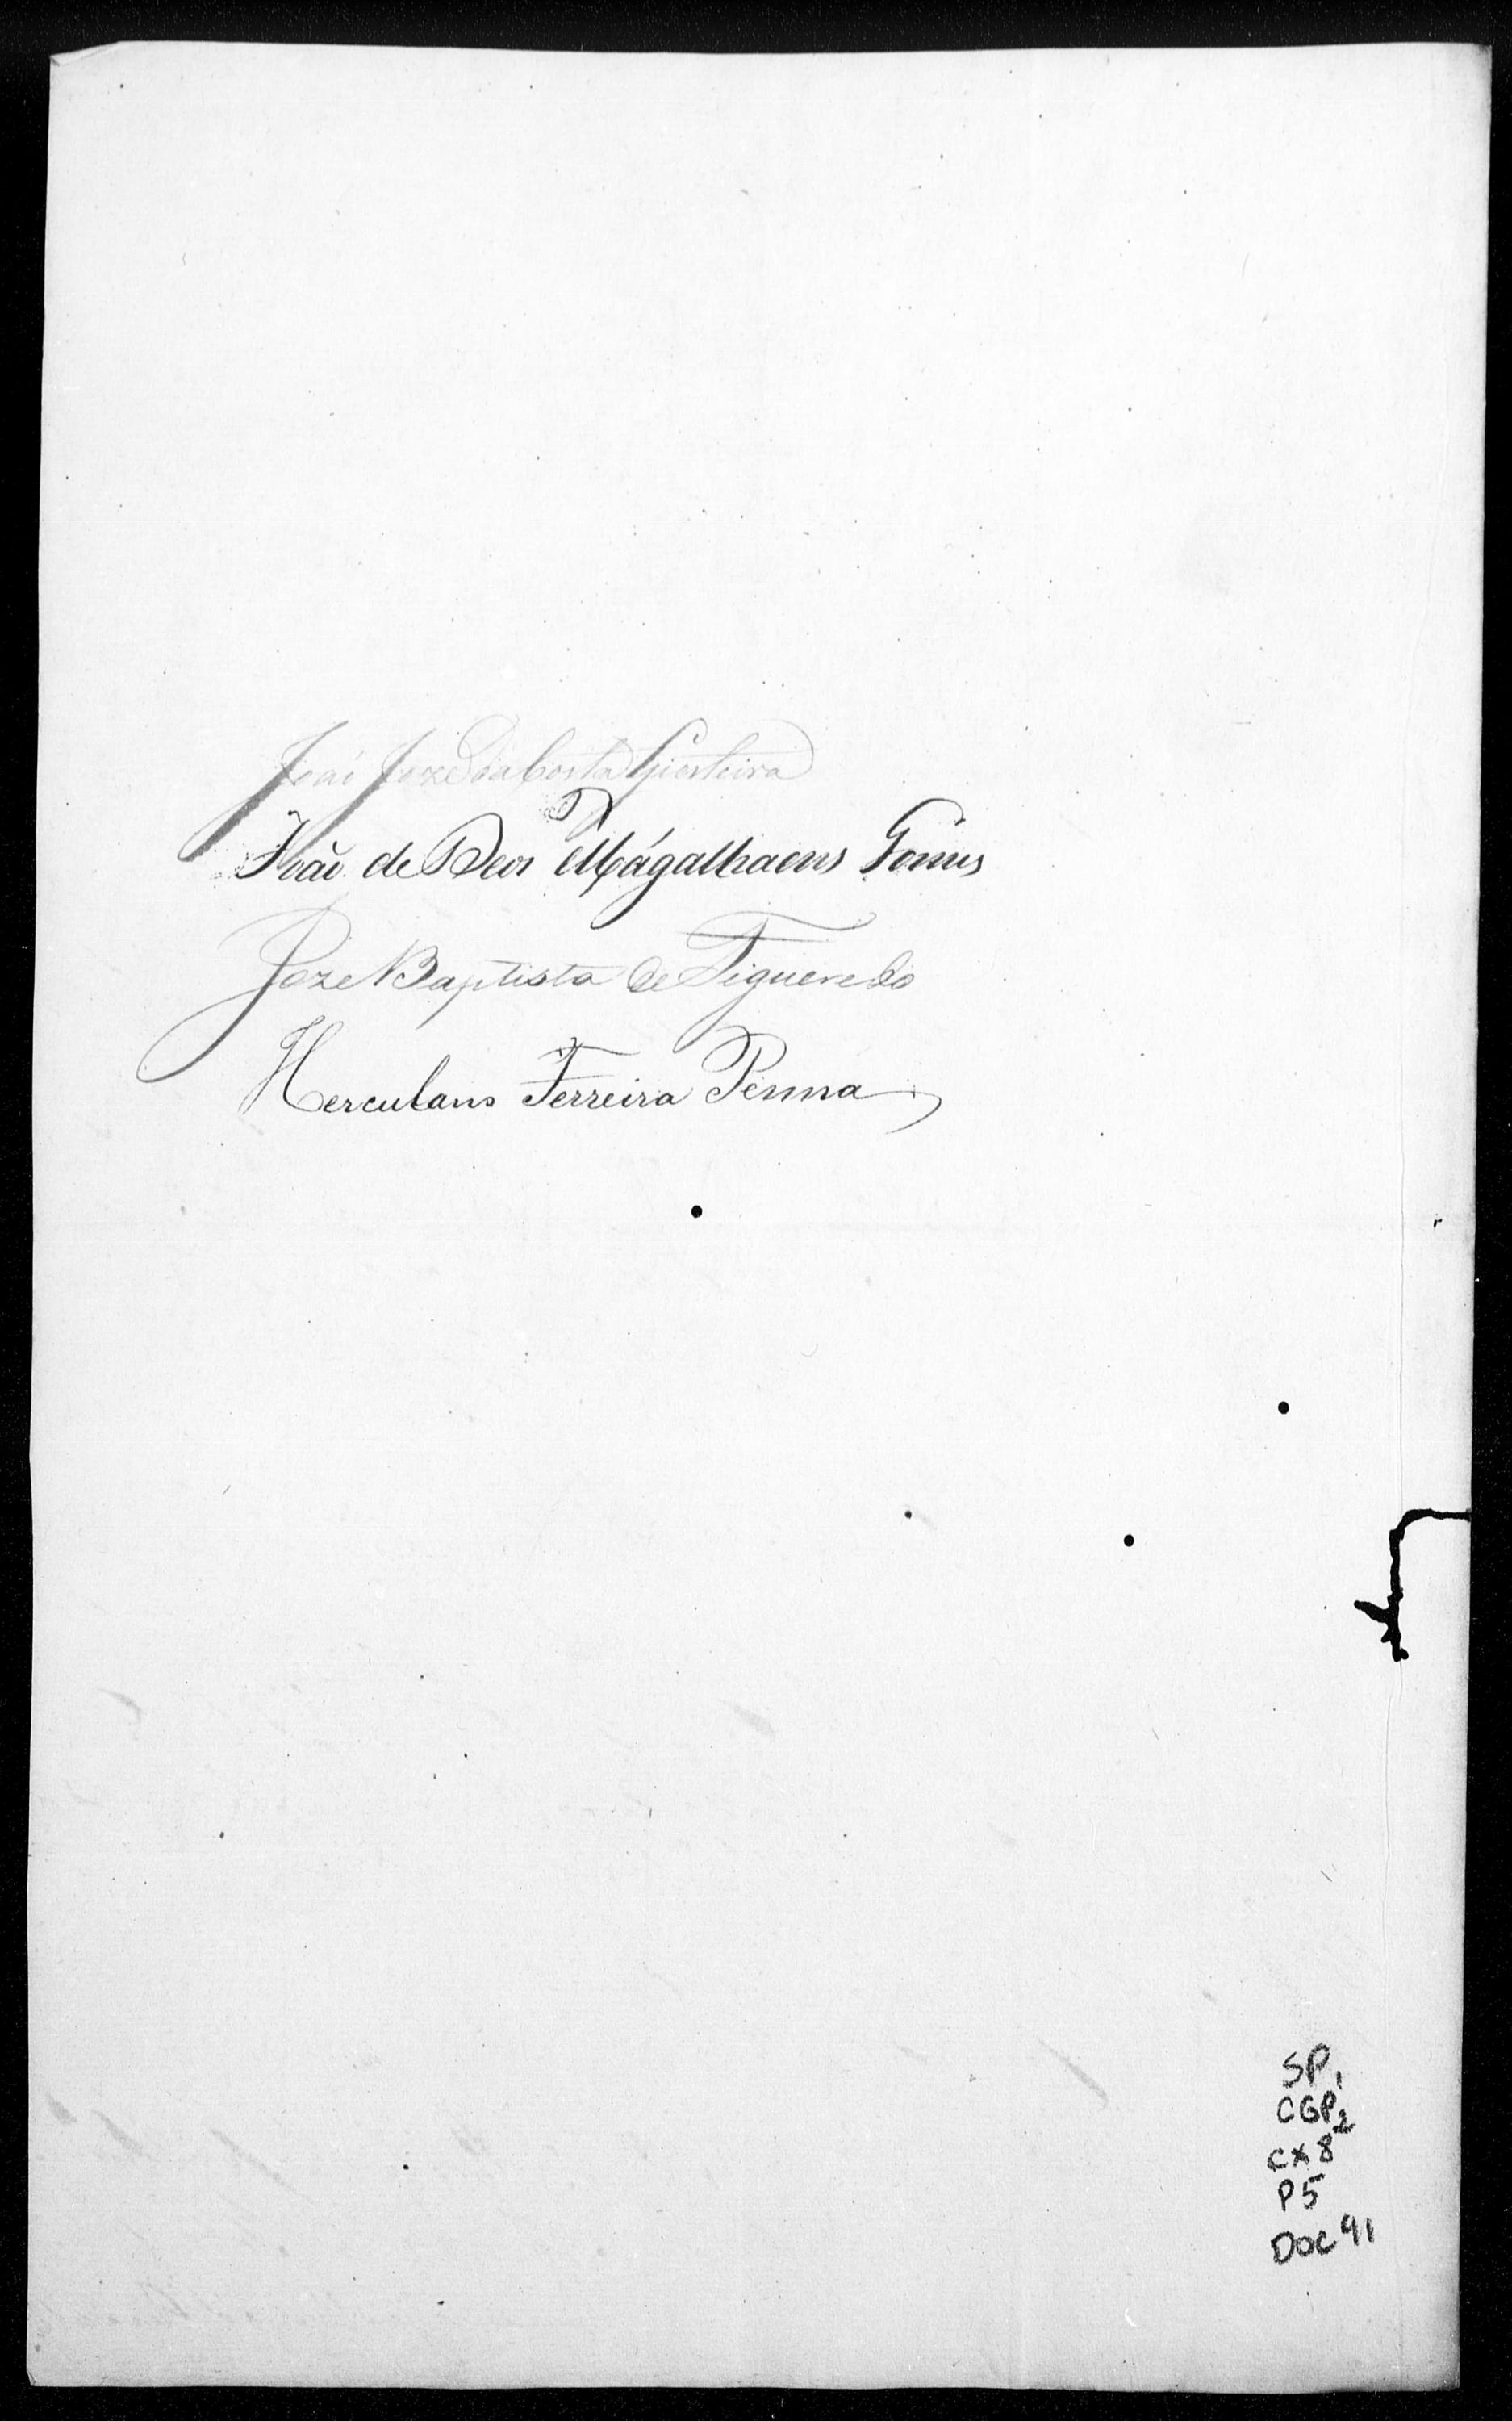 João Joze da Costa Giesteira
João de Deos Magalhaens Gomes
Joze Baptista de Figueredo
Herculano Ferreira Penna
SP1
CGP2
CX8
P5
DOC 41